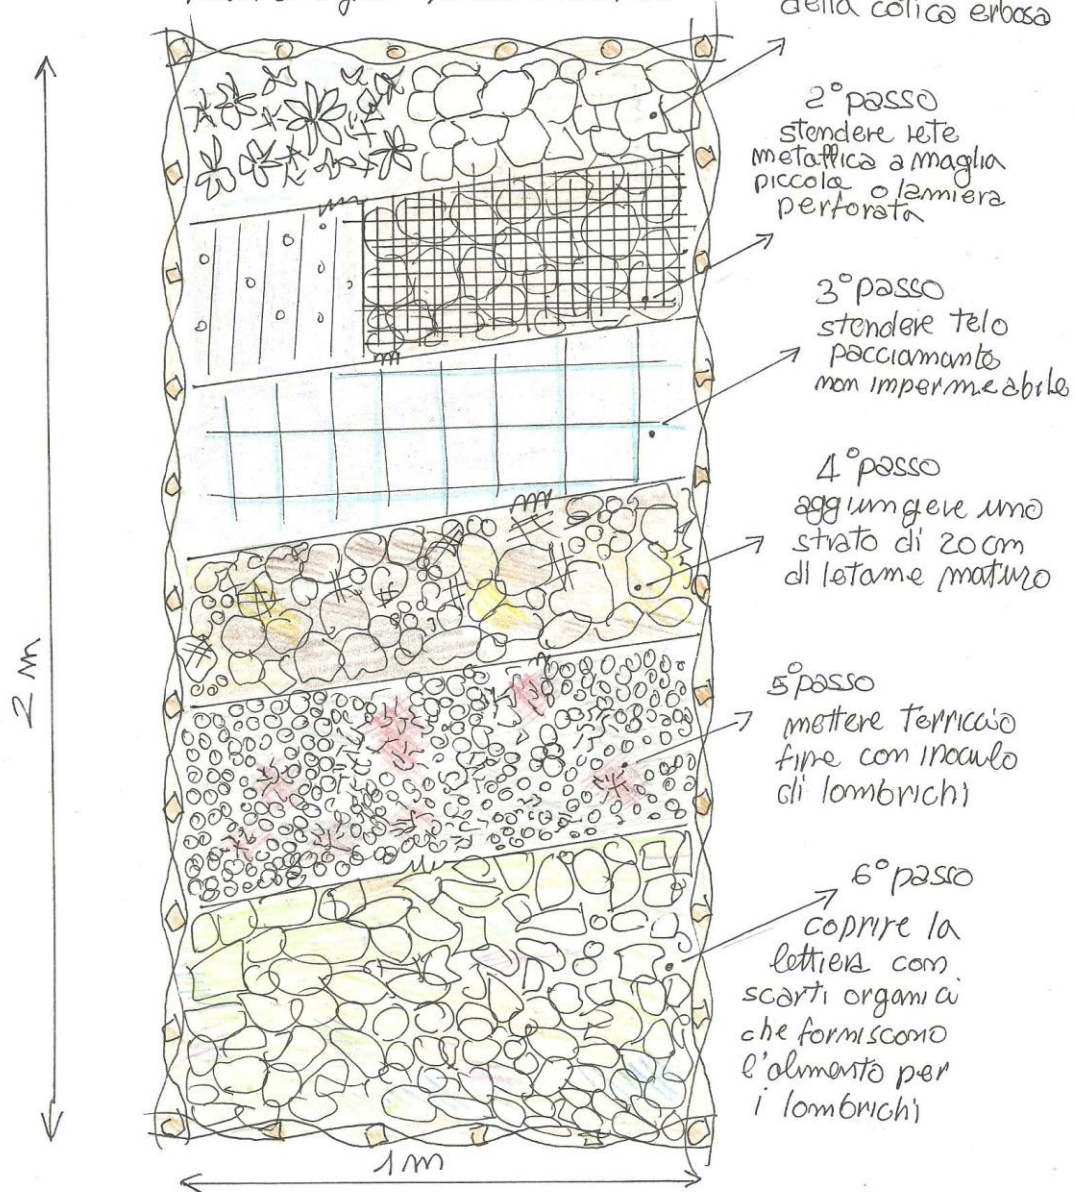 della cotica erbosa
2° passo
stendere rete
metallica a maglia
piccola o lamiera
perforata
3° passo
stendere telo
pacciamante
non impermeabile
4° passo
aggiungere uno
strato di 20 cm
di letame maturo
5° passo
mettere terriccio
fine con inoculo
di lombrichi
6° passo
coprire la
lettiera con
scarti organici
che forniscono
l'alimento per
i lombrichi
2 m
1 m